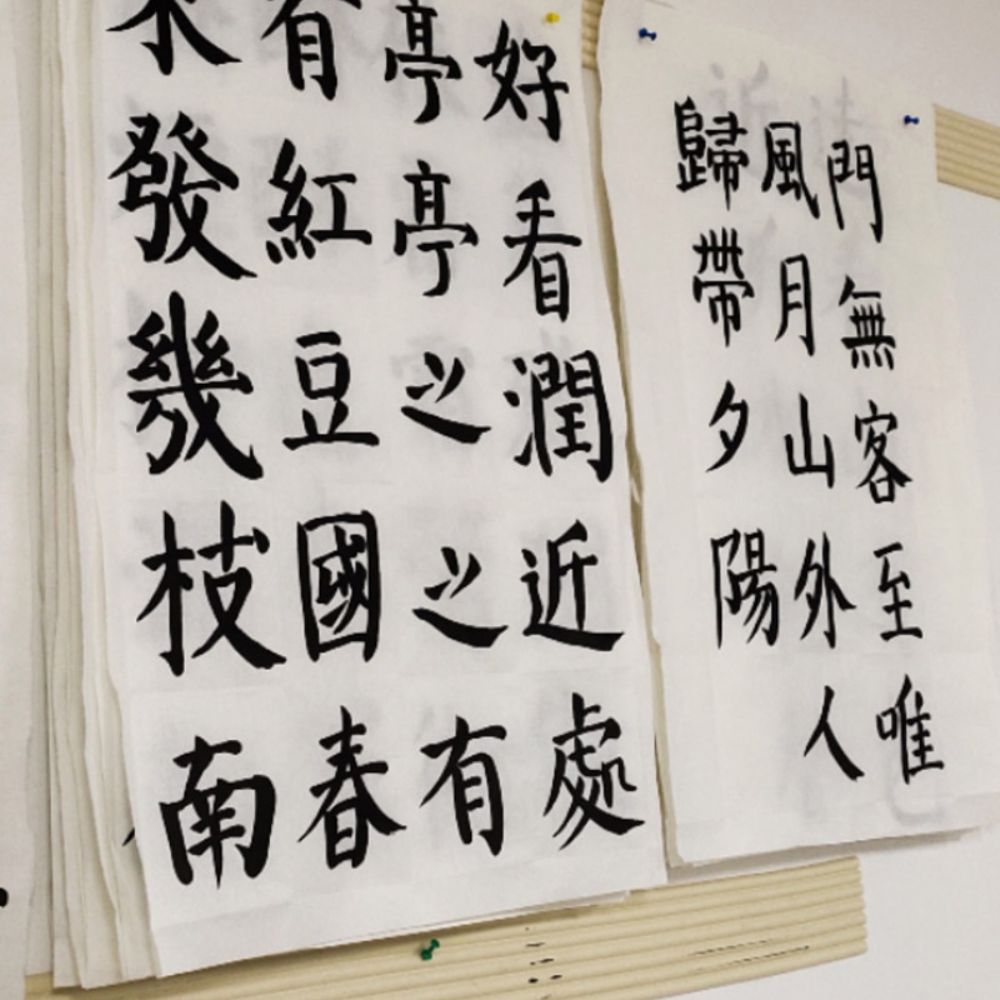 門無客至唯
風月山外人
歸帶夕陽
好看潤近處
亭亭之之有
有紅豆國春
發幾枝南